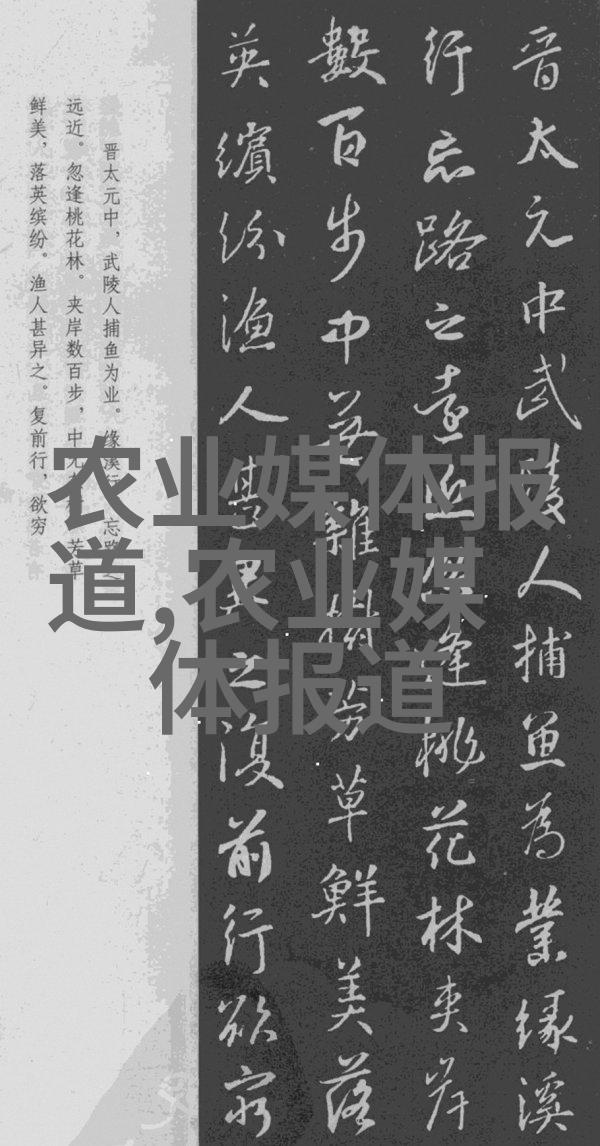 晋太元中武陵人捕魚為業緣溪
行忘路之遠近忽逢桃花林夾岸
數百步中無雜樹芳草鮮美落
英繽紛漁人甚異之復前行欲窮
晋太元中，武陵人捕鱼为业。缘溪行，忘路之
远近。忽逢桃花林。夹岸数百步，中无杂树，芳草
鲜美，落英缤纷。渔人甚异之。复前行，欲穷
农业媒体报
道,农业媒
体报道